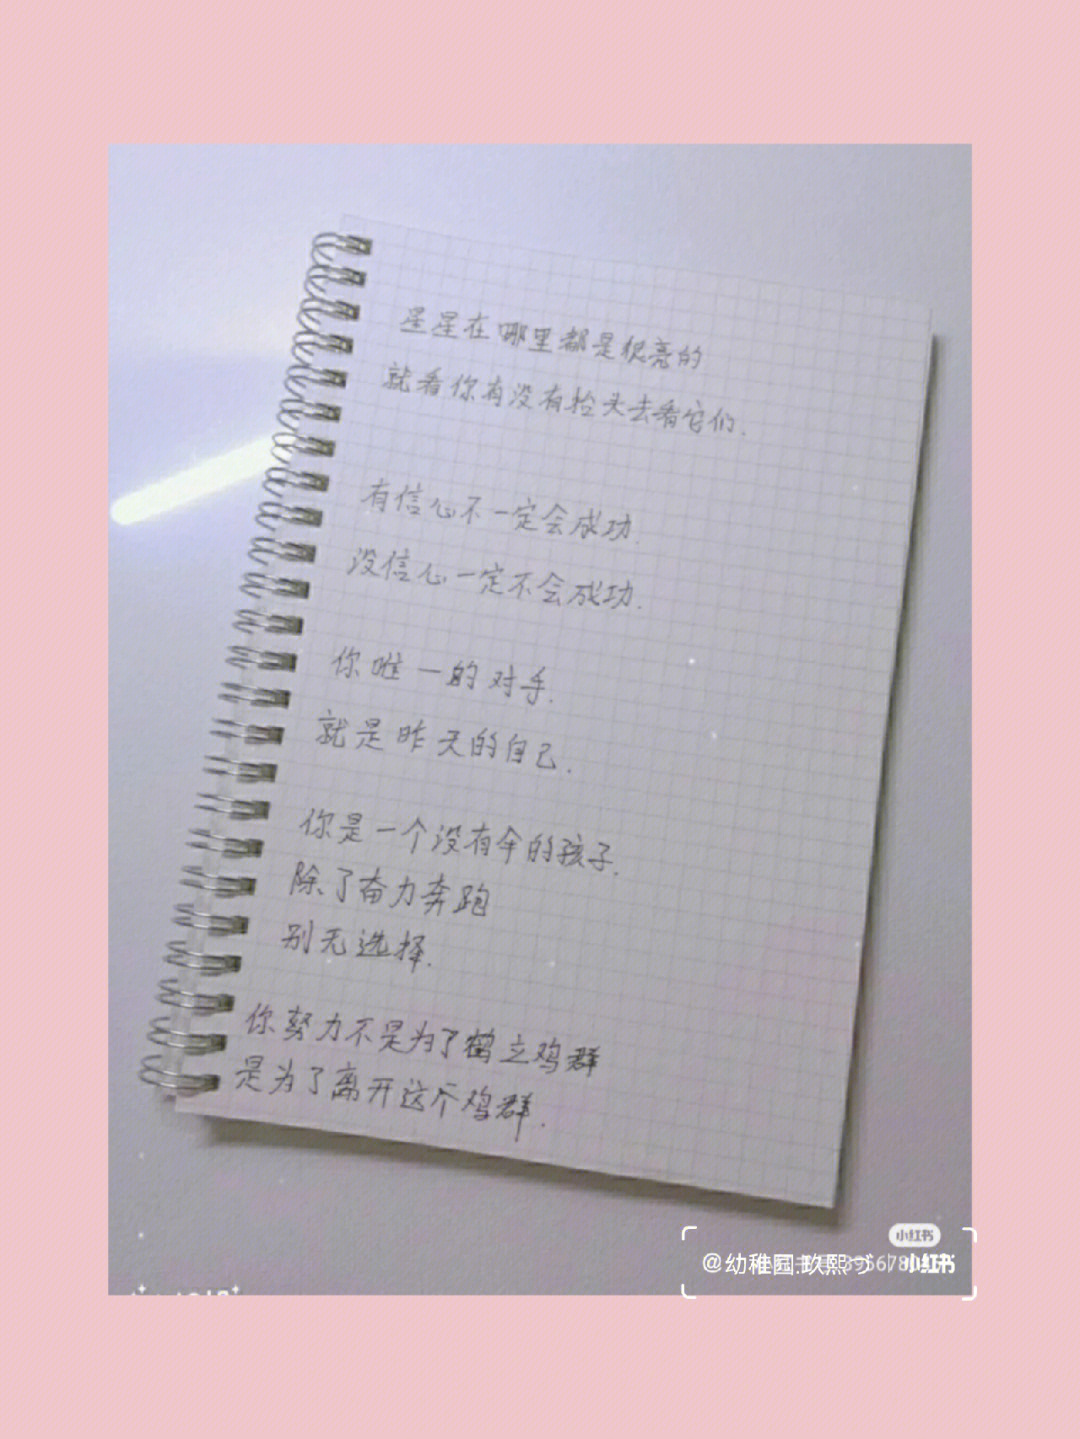 星星在哪里都是很亮的
就看你有没有抬头去看它们.
有信心不一定会成功.
没信心一定不会成功.
你唯一的对手.
就是昨天的自己.
你是一个没有伞的孩子.
除了奋力奔跑
别无选择.
你努力不是为了鹤立鸡群
是为了离开这个鸡群.
小红书
@幼稚园.玖熙づ
小红书